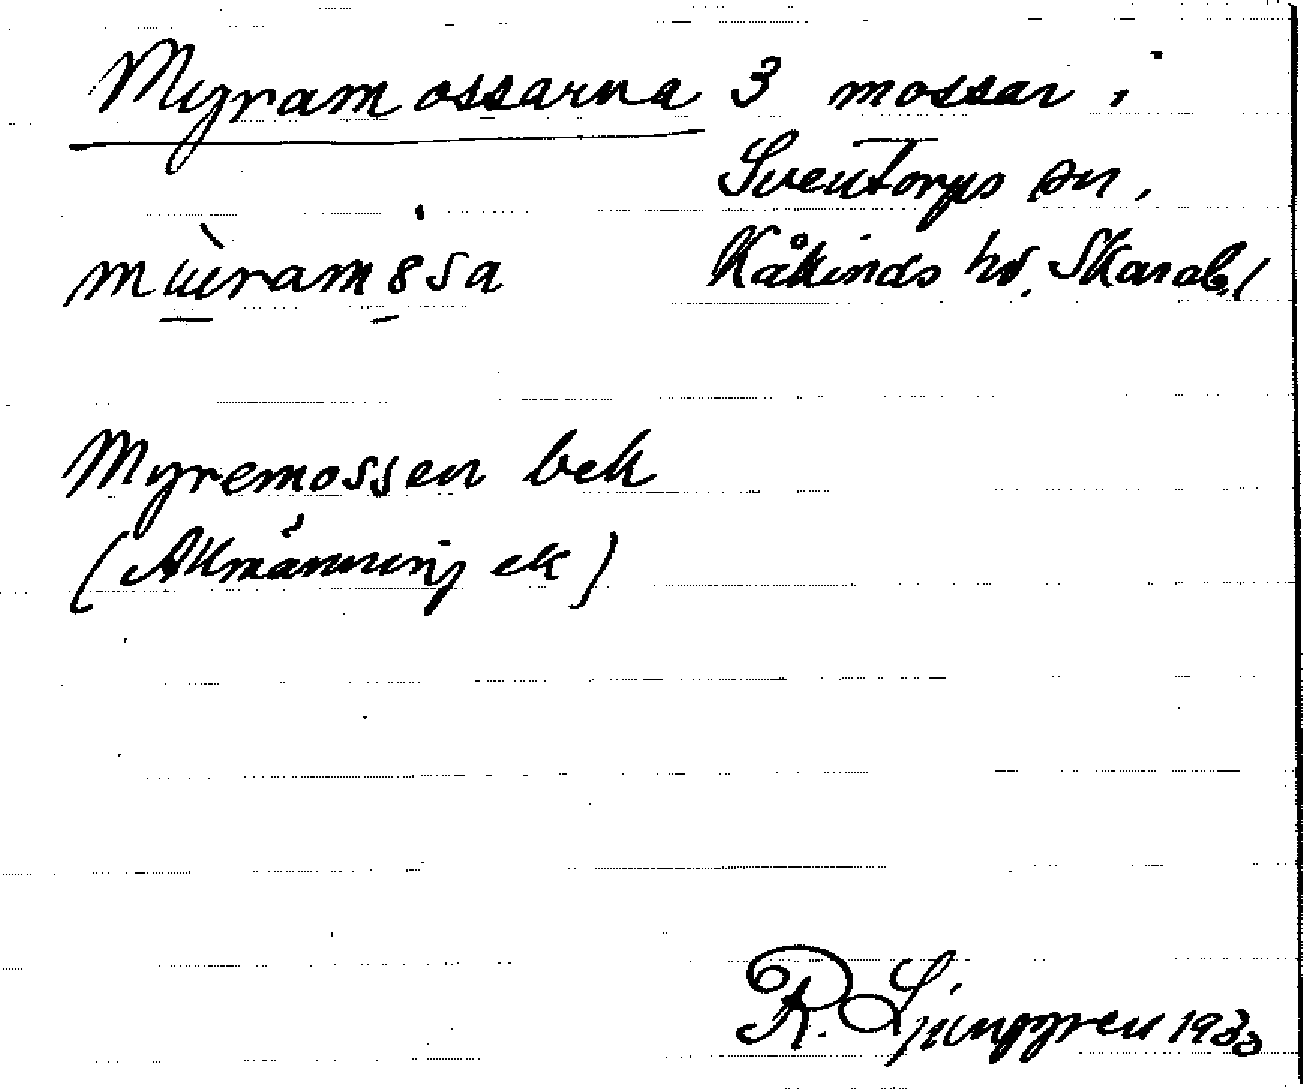 Myramossarna 3 mossar i
Sventorps sn,
Kåkinds hd. Skarab. l
Myremossen bek
(Allmänning ek)
R. Ljunggren 1933